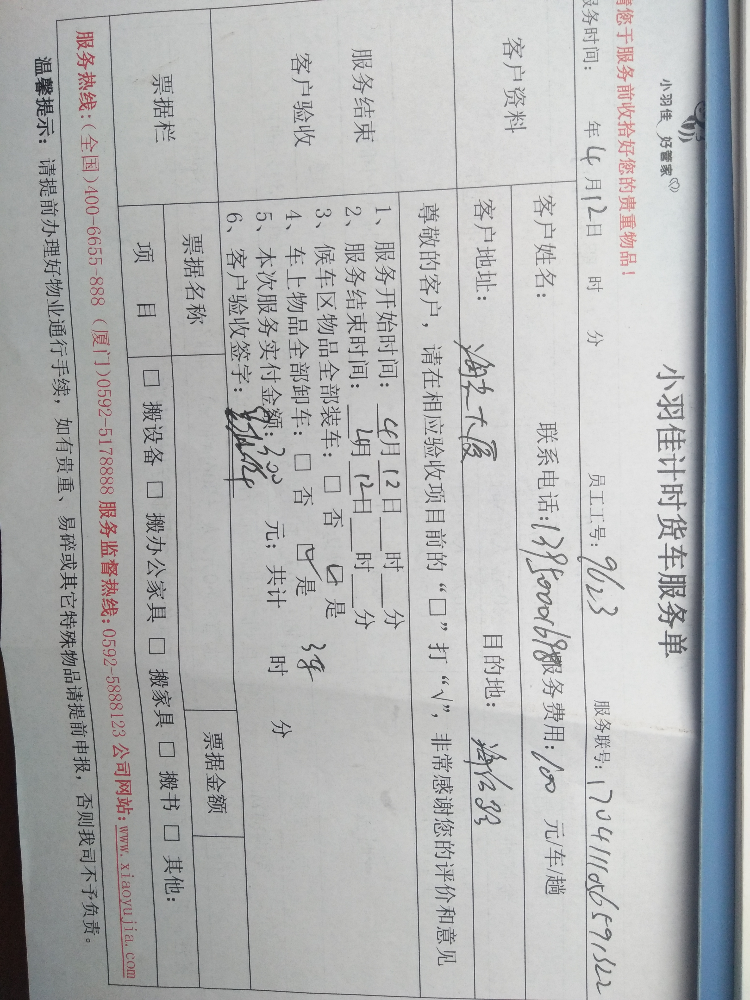 小羽佳 好管家
小羽佳计时货车服务单
请您于服务前收拾好您的贵重物品！
服务时间： 年4月12日 时 分 员工工号：9623 服务联号：
客户资料
客户姓名： 联系电话： 服务费用：100 元/车/趟
客户地址： 大厦 目的地：
尊敬的客户，请在相应验收项目前的“□”打“√”，非常感谢您的评价和意见
服务结束
客户验收
1、服务开始时间：4月12日 时 分
2、服务结束时间：4月12日 时 分
3、候车区物品全部装车：□ 否 ☑ 是
4、车上物品全部卸车：□ 否 ☑ 是 3车
5、本次服务实付金额：300 元；共计 时 分
6、客户验收签字：
票据栏
票据名称 票据金额
项 目 □ 搬设备 □ 搬办公家具 □ 搬家具 □ 搬书 □ 其他：
服务热线：(全国)400-6655-888 (厦门)0592-5178888 服务监督热线：0592-5888123 公司网站：www.xiaoyujia.com
温馨提示：请提前办理好物业通行手续，如有贵重、易碎或其它特殊物品请提前申报，否则我司不予负责。